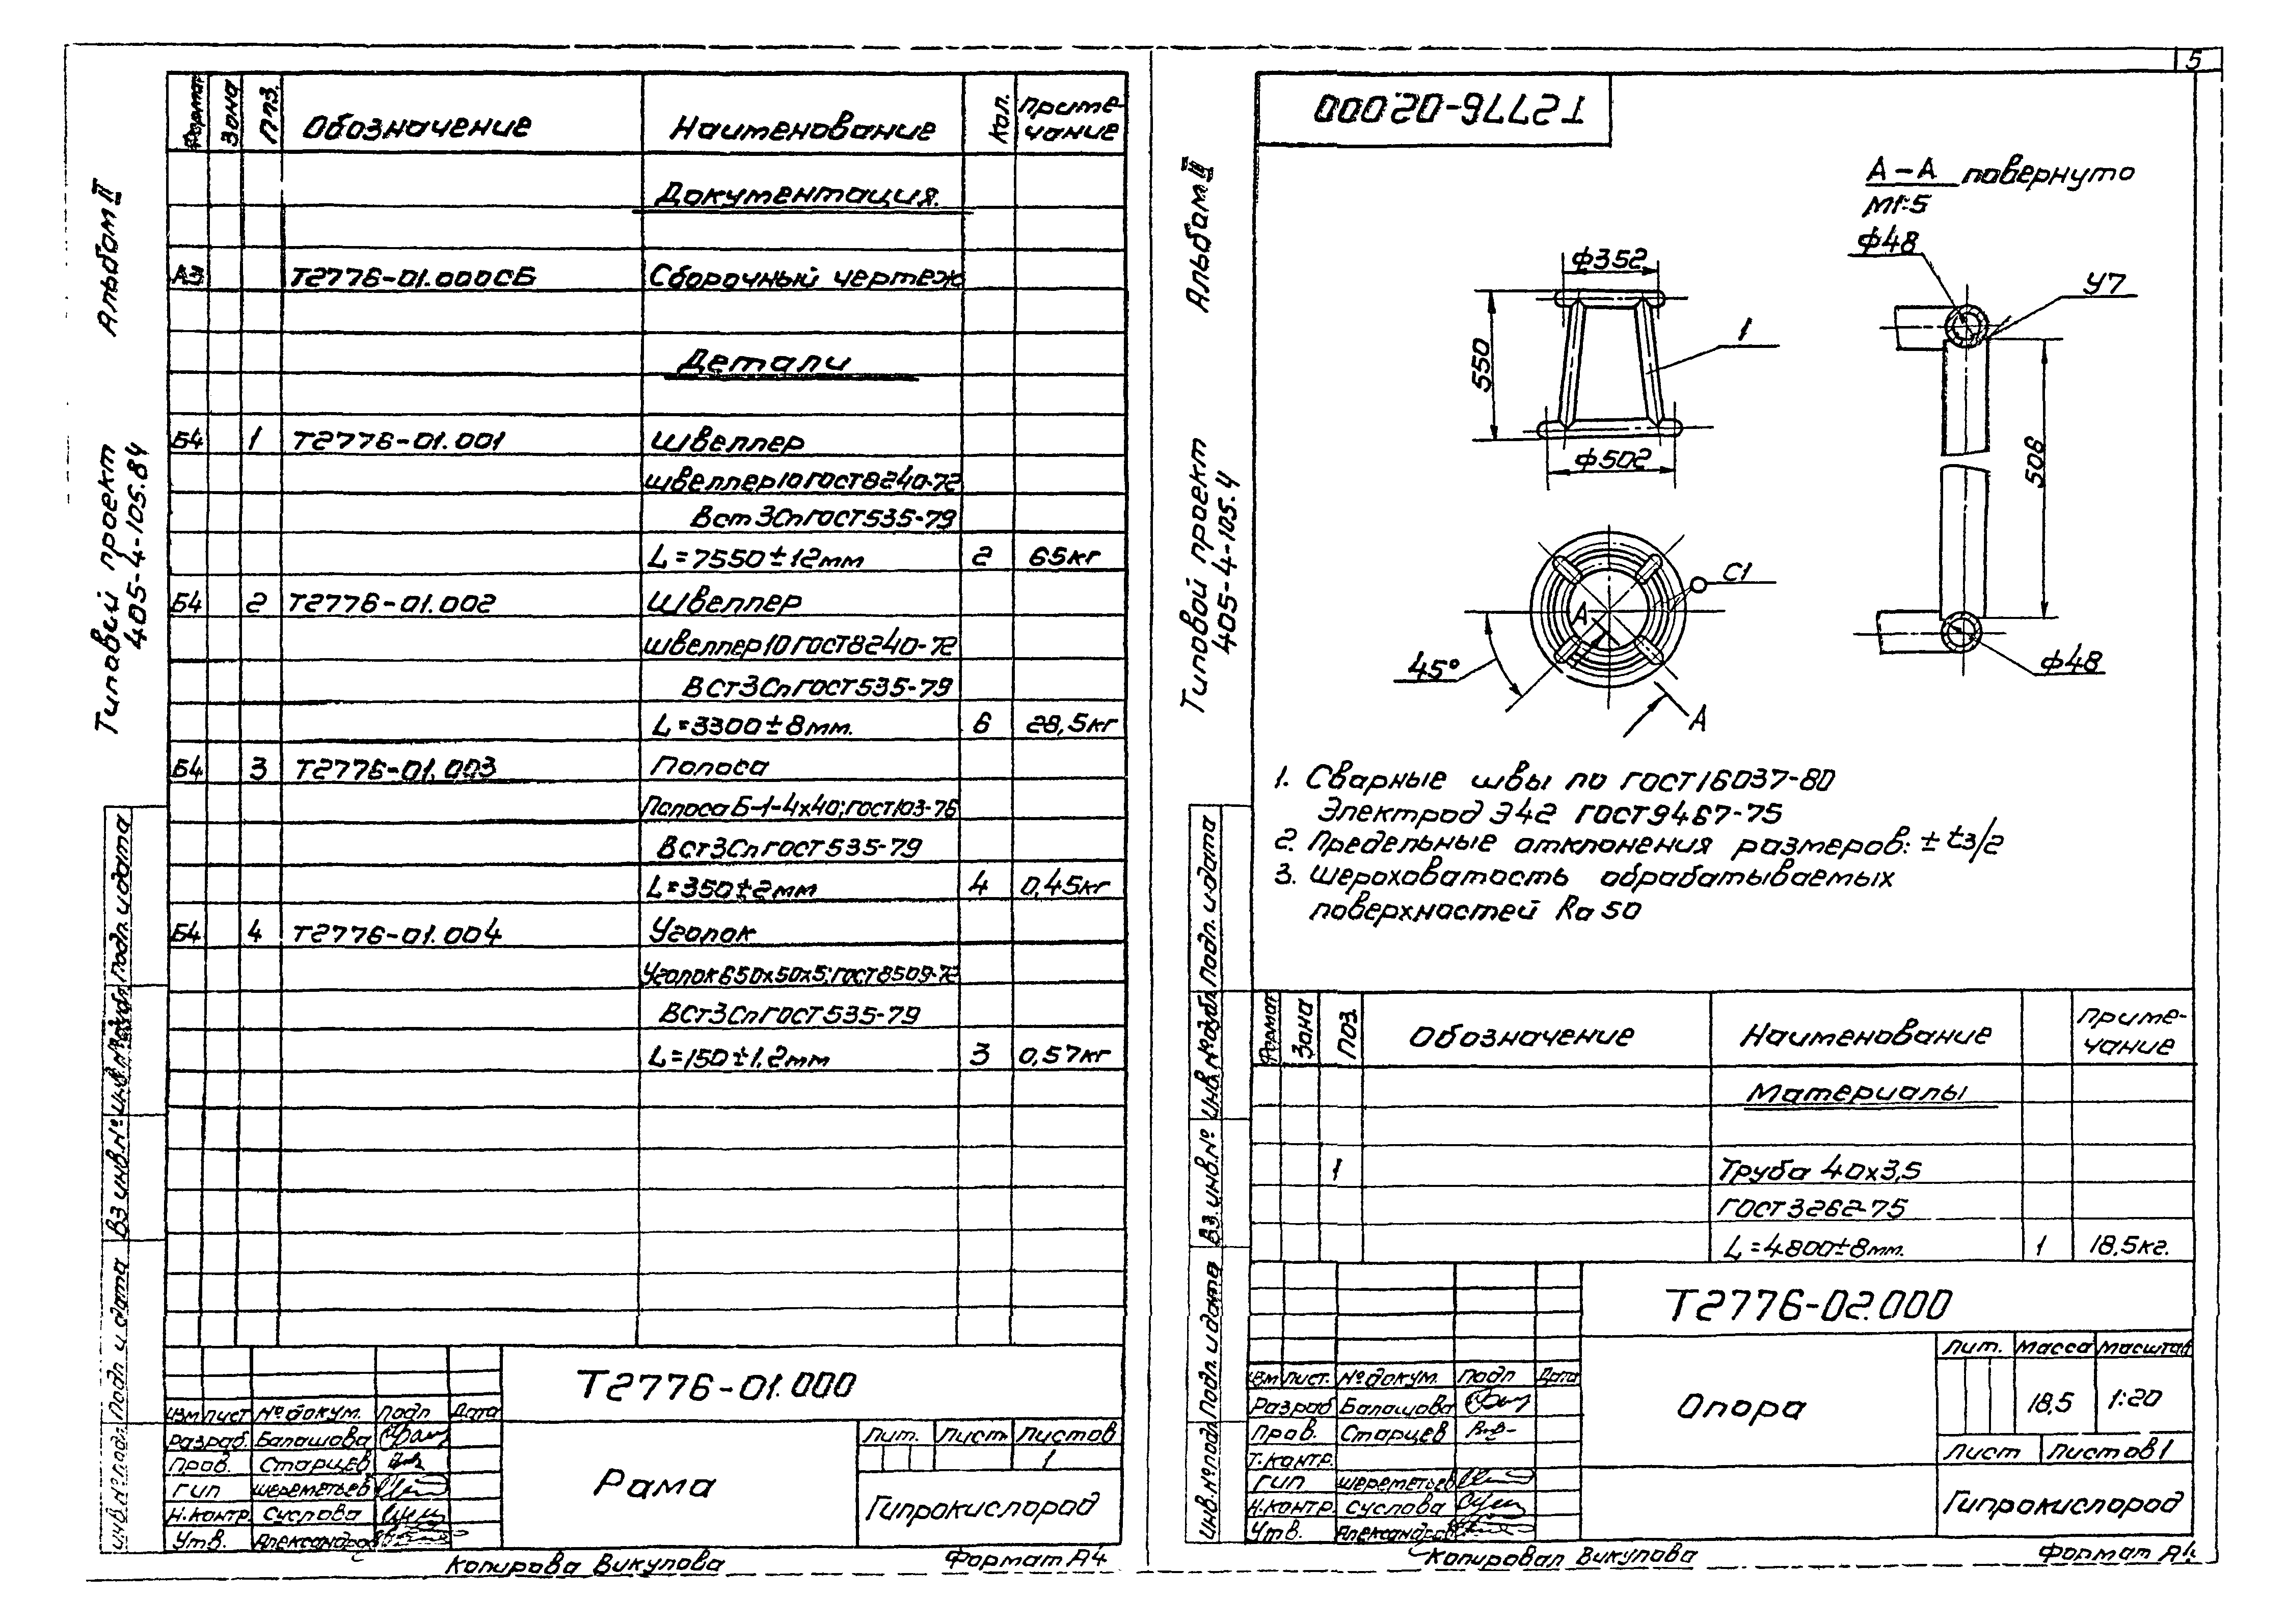 5
Альбом II
Типовой проект
405-4-105.84
Формат Зона Поз. Обозначение Наименование Кол. Приме-
чание
Документация.
А3 Т2776-01.000СБ Сборочный чертеж
Детали
Б4 1 Т2776-01.001 Швеллер
швеллер10 ГОСТ8240-72
Вст3Сп ГОСТ535-79
L=7550±12мм 2 65кг
Б4 2 Т2776-01.002 Швеллер
швеллер10 ГОСТ8240-72
ВСт3Сп ГОСТ535-79
L=3300±8мм. 6 28,5кг
Б4 3 Т2776-01.003 Полоса
Полоса Б-1-4х40; ГОСТ103-76
ВСт3Сп ГОСТ535-79
L=350±2мм 4 0,45кг
Б4 4 Т2776-01.004 Уголок
Уголок Б50х50х5; ГОСТ8509-72
ВСт3Сп ГОСТ535-79
L=150±1,2мм 3 0,57кг
Инв.№подл. Подп. и дата Вз инв.№ Инв.№дубл. Подп. и дата
Т2776-01.000
Изм Лист №докум. Подп Дата
Разраб. Балашова
Пров. Старцев
ГИП Шереметьев
Н.контр. Суслова
Утв. Александров
Рама
Лит. Лист Листов
1
Гипрокислород
Копирова Викулова Формат А4
Альбом II
Типовой проект
405-4-105.4
Т2776-02.000
А-А повернуто
М1:5
ф48
У7
506
ф48
ф352
550
1
ф502
С1
45°
А
А
1. Сварные швы по ГОСТ16037-80
Электрод Э42 ГОСТ9467-75
2. Предельные отклонения размеров: ± t3/2
3. Шероховатость обрабатываемых
поверхностей Ra50
Формат Зона Поз. Обозначение Наименование Приме-
чание
Материалы
1 Труба 40х3,5
ГОСТ3262-75
L=4800±8мм. 1 18,5кг.
Инв.№подл. Подп. и дата Вз. инв.№ Инв.№дубл. Подп. и дата
Т2776-02.000
Изм Лист. №докум. Подп Дата
Разраб Балашова
Пров. Старцев
Т.контр.
ГИП Шереметьев
Н.контр. Суслова
Утв. Александров
Опора
Лит. Масса Масштаб
18,5 1:20
Лист Листов 1
Гипрокислород
Копировал Викулова Формат А4